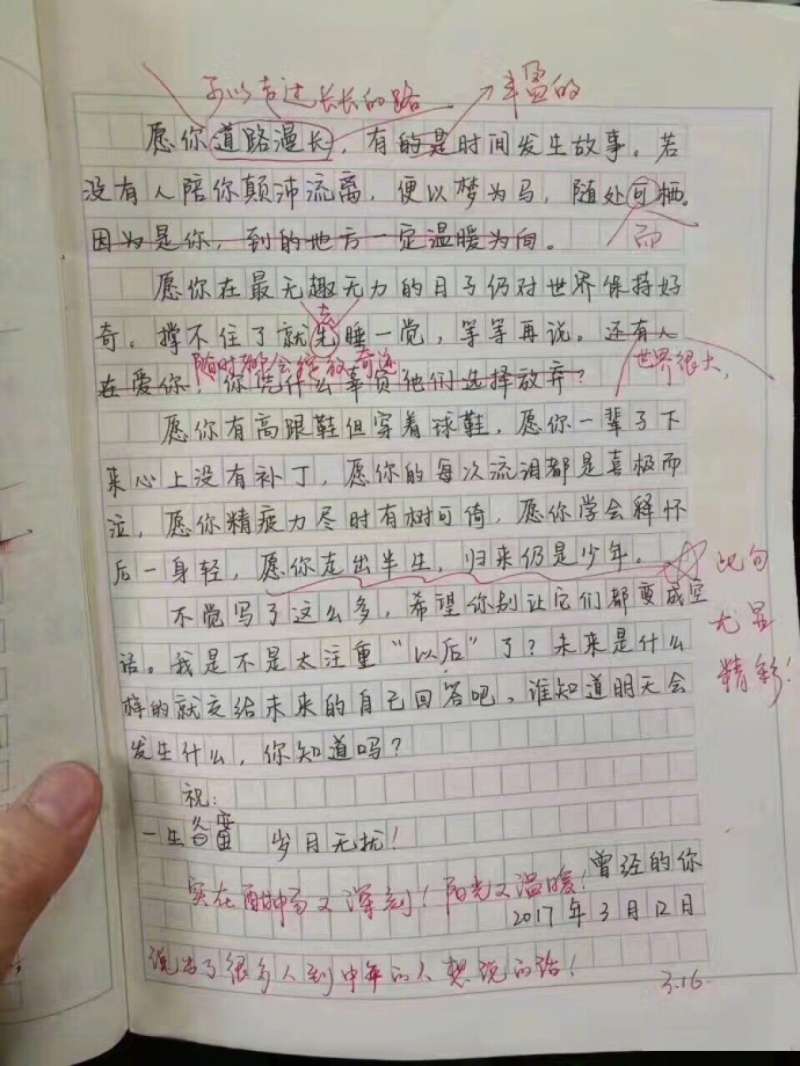 可以走过长长的路
丰盈的
愿你道路漫长，有的是时间发生故事。若
没有人陪你颠沛流离，便以梦为马，随处可栖。
而
因为是你，到的地方一定温暖为向。
愿你在最无趣无力的日子仍对世界保持好
去
奇。撑不住了就先睡一觉，等等再说。还有人
随时都会绽放奇迹
世界很大，
在爱你，你凭什么辜负他们选择放弃？
愿你有高跟鞋但穿着球鞋，愿你一辈子下
来心上没有补丁，愿你的每次流泪都是喜极而
泣，愿你精疲力尽时有树可倚，愿你学会释怀
后一身轻，愿你走出半生，归来仍是少年。
此句
尤显
精彩！
不觉写了这么多，希望你别让它们都变成空
话。我是不是太注重“以后”了？未来是什么
样的就交给未来的自己回答吧，谁知道明天会
发生什么，你知道吗？
祝：
一生 岁月无扰！
曾经的你
实在酣畅又深刻！阳光又温暖！
2017年3月12日
说出了很多人到中年的人想说的话！
3.16.